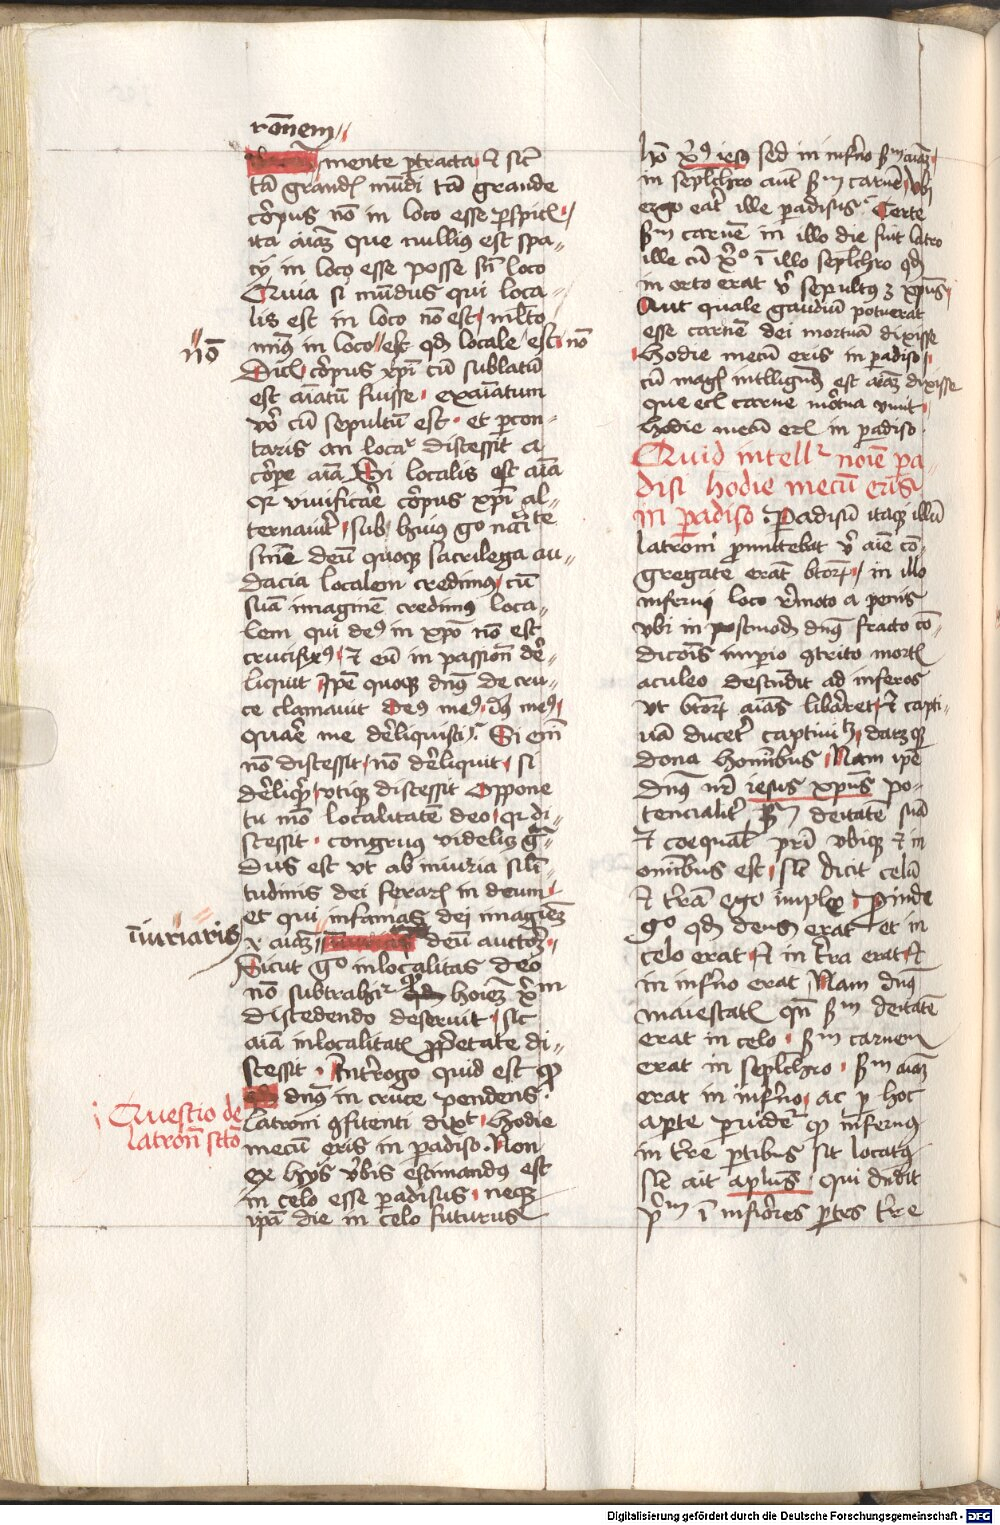 rōnem
mente ꝑtracta, et sic̄
tā grand̄ mūdi tā grande
cōrpus nō in loco esse ꝑspic̄
ita aīaꝫ que nullius est spa=
cij in loco esse posse sn̄ loco
Quia si mūdus qui loca=
lis est in loco nō est, ml̄to
min⁹ in loco est qd̄ locale est nō
nō
Dic̄ cōrpus xp̄i cū sublatū
est aīatū fuisse, exaīatum
v̄o cū sepultū est, et ꝑcon=
taris an locar̄ discessit a
cōrpe aīa Si localis est aīa
qꝛ vivificare cōrpus xp̄i al=
ternavit, sub huius go nār̄te
sinē deū quoque sacrilega au=
dacia localem credim⁹, cū
suā imaginē credim⁹ loca=
lem qui de⁹ in xp̄o nō est
crucifix⁹, et eū in passion̄ de=
liquit Ip̄e quoque dn̄s de cru=
ce clamavit De⁹ me⁹, d̄s me⁹,
quare me dereliquisti? Si em̄
nō discessit, nō dereliquit, si
dereliqt, utique discessit Oppone
tu mō localitatē deo, qꝛ di=
scessit, congruus videlis gra=
dus est ut ab iniuria simi=
tudinis dei feraris in deum,
et qui infamas dei imagiēꝫ
iniuriaris
aīaꝫ deū auctorē.
Sicut go inlocalitas deo
nō subtrahir̄ hoīeꝫ
discedendo deseruit, sic
aīa inlocalitat̄ ꝓp̄etate di=
scessit. Int̄rogo quid est qꝫ
Questio de
latron̄ sc̄to
dn̄s in cruce pendens
latroni ꝯfitenti dixit, hodie
mecū eris in ꝑadiso. Non
ex hijs v̄bis estimand⁹ est
in celo esse ꝑadisus, neque
ip̄a die in celo futurus
hō x̄p⁹ iesus sed in inf̄no sm̄ aīaꝫ,
in seplchro aut̄ sm̄ carnē, ubi
ergo eat̄ ille ꝑadisus? Certe
sm̄ carnē in illo die fuit latro
ille cū xp̄o ī illo seplchro qd̄
in orto erat v̄ sepult⁹ ꝫ xpūs
Aut quale gaudiū potuerat
esse carnē dei mortuā dixisse
hodie mecū eris in ꝑadiso,
cū maḡ intelligend̄ est aīaꝫ dixisse
que ec̄ carne mortua vivit,
hodie mecū er̄ in ꝑadiso.
Quid intell̄r noīe pa=
disi hodie mecū eris
in ꝑadiso. Padisū itaque illū
latroni promittebat v̄ aīe cō=
gregate erāt btōrꝫ, in illo
inferni loco r̄moto a penis
vbi in postmod̄ dn̄s fracto cō=
dicōis imꝑio ꝯtrito mort̄
aculeo descendit ad inferos
ut btōrꝫ aīas liberet, et capti=
vā duceret captivitꝫ, datque
dona hominibus, Nam ip̄e
dn̄s nr̄ iesus xpūs po=
tencialit̄, sm̄ deitatē suā
et coequal̄ pr̄i ubique et in
omībus est, sic̄ dicit celū
et t̄rā ego impleo. Proinde
go qd̄ deus erat et in
celo erat, et in t̄ra erat, et
in inf̄no erat, Nam dn̄s
maiestat̄ qn̄ sm̄ deitatē
erat in celo, sm̄ carnem
erat in seplchro, sm̄ aīaꝫ
erat in inf̄no, ac ꝑ hoc
aꝑte ꝓvidet̄ qꝫ infernus
in t̄re ꝑtibus sit locat⁹
sic̄ ait aplūs, qui descendit
ī inferiores ꝑtes t̄re
Digitalisierung gefördert durch die Deutsche Forschungsgemeinschaft - DFG